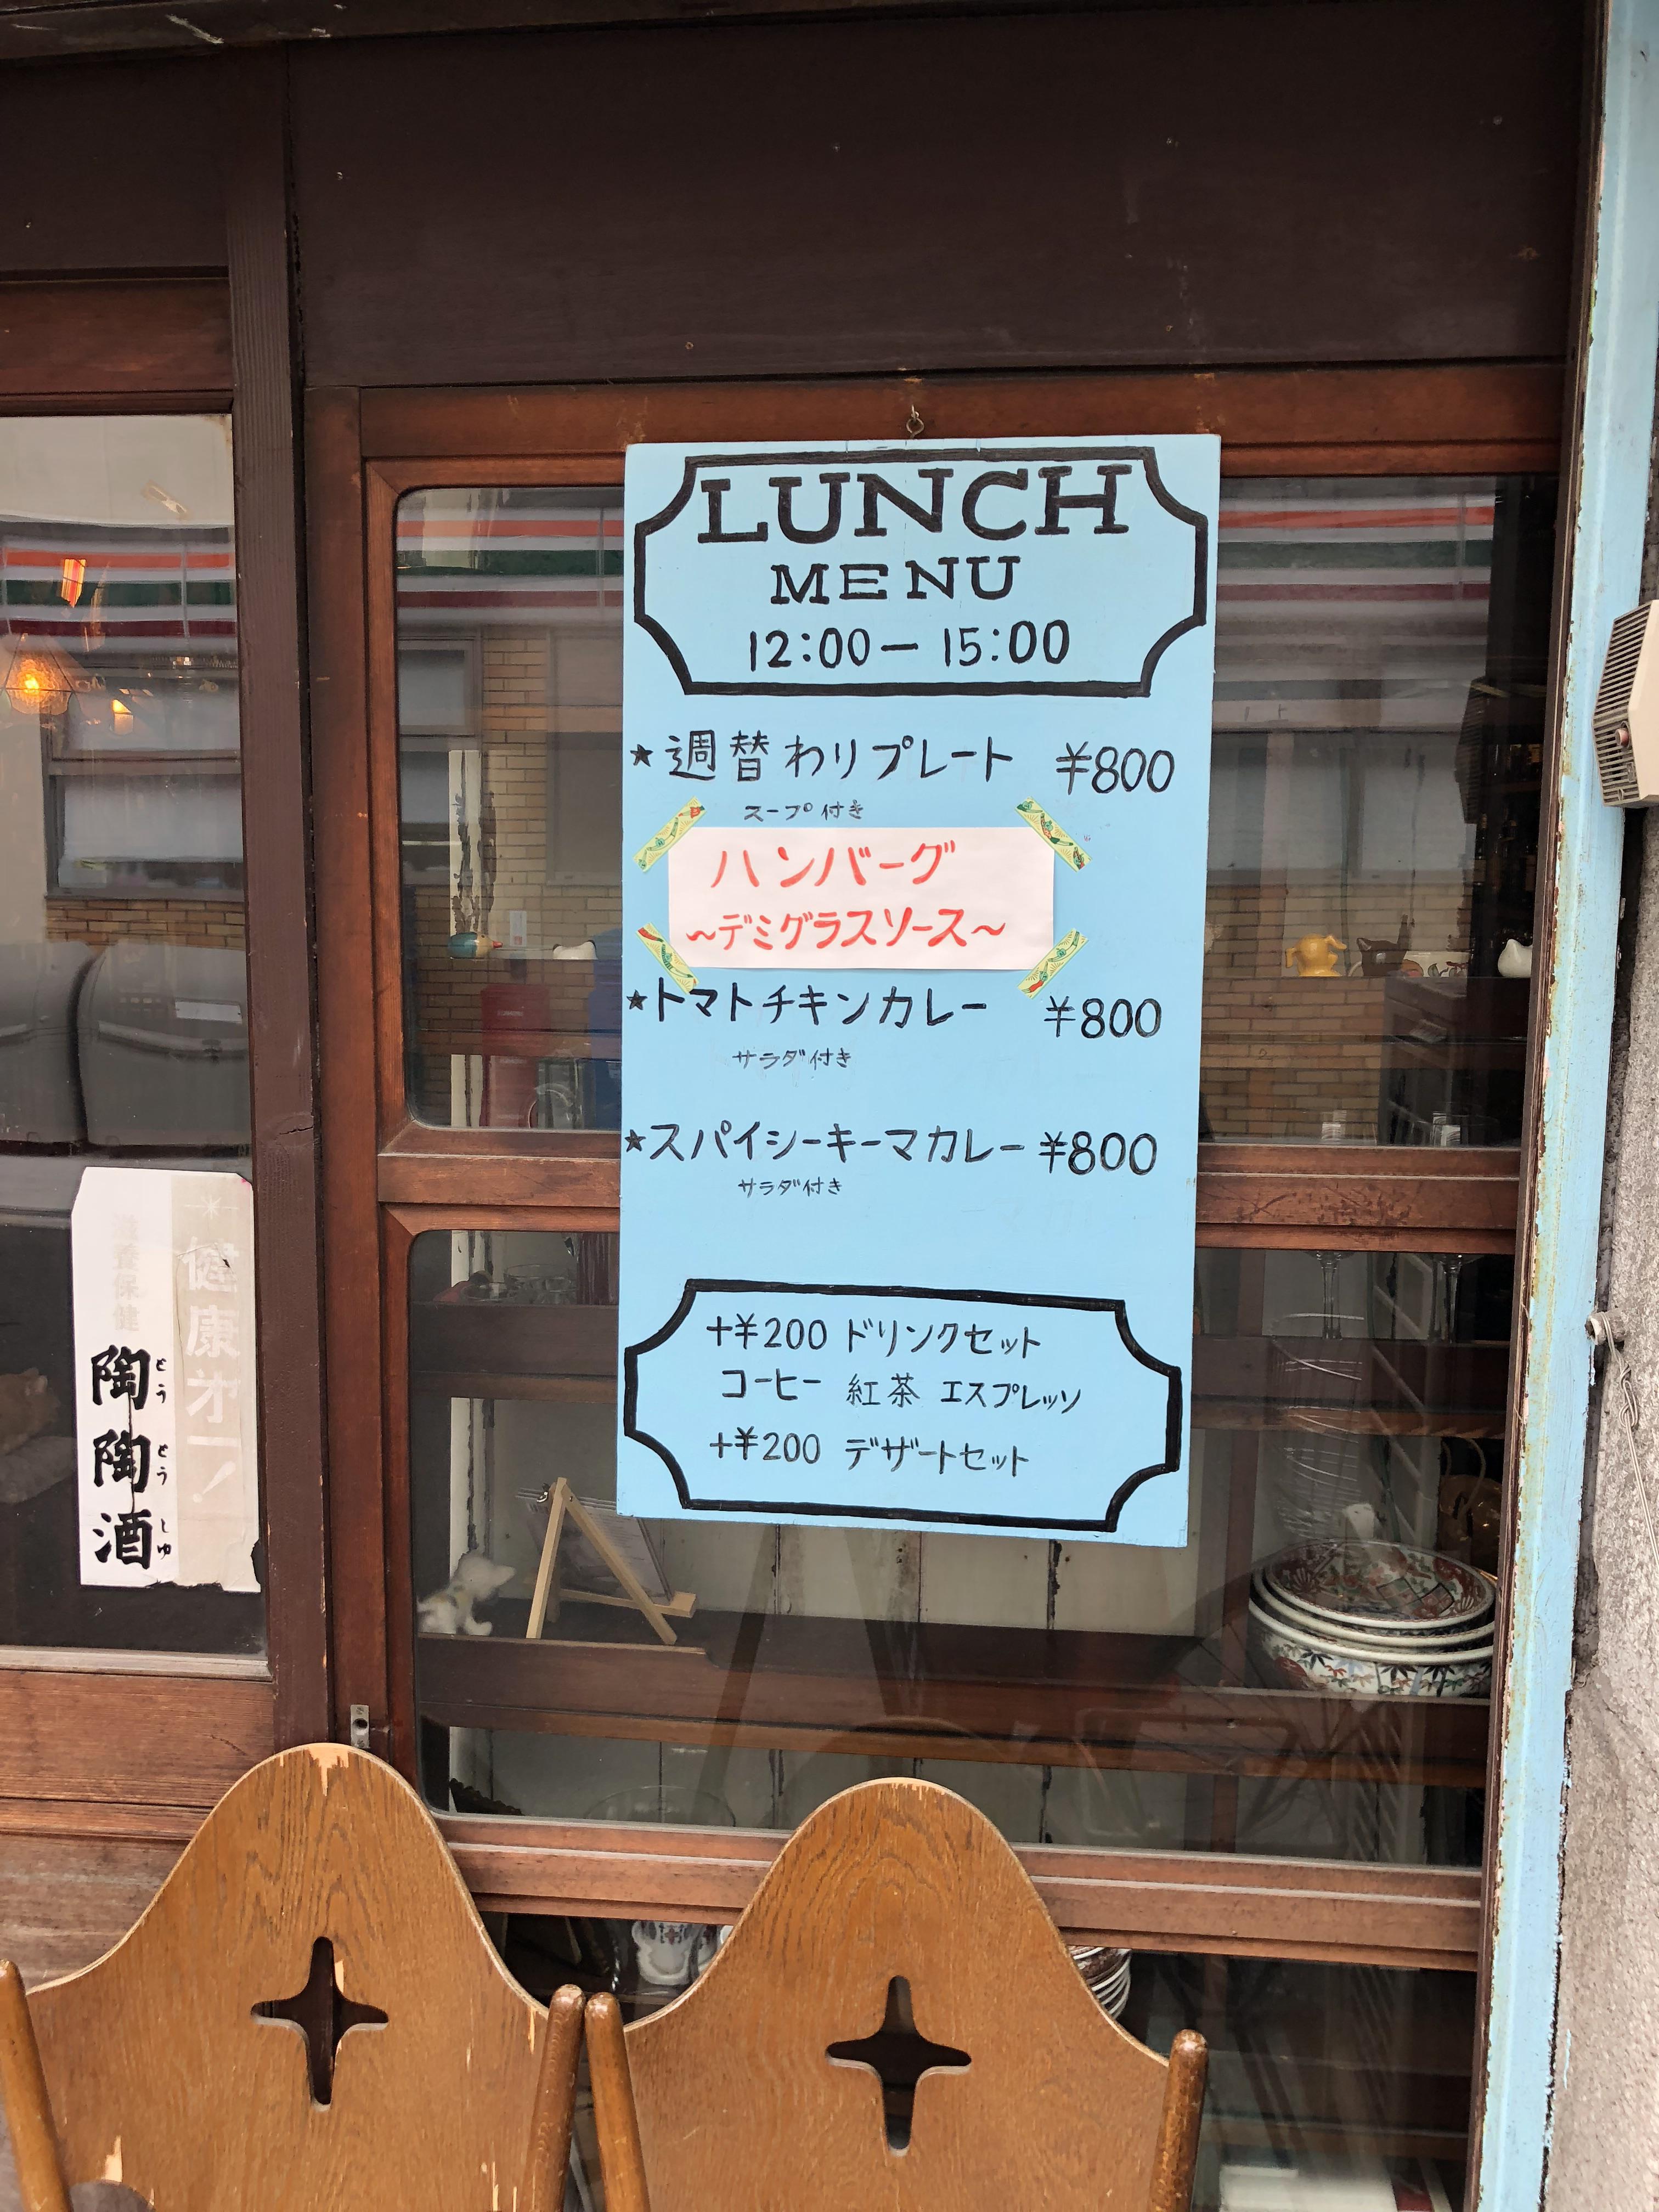 LUNCH
MENU
12:00ー15:00
★週替わりプレート ¥800
スープ付き
ハンバーグ
～デミグラスソース～
★トマトチキンカレー ¥800
サラダ付き
★スパイシーキーマカレー ¥800
サラダ付き
+¥200 ドリンクセット
コーヒー 紅茶 エスプレッソ
+¥200 デザートセット
健康オー!
滋養保健
陶陶酒
とうとうしゅ